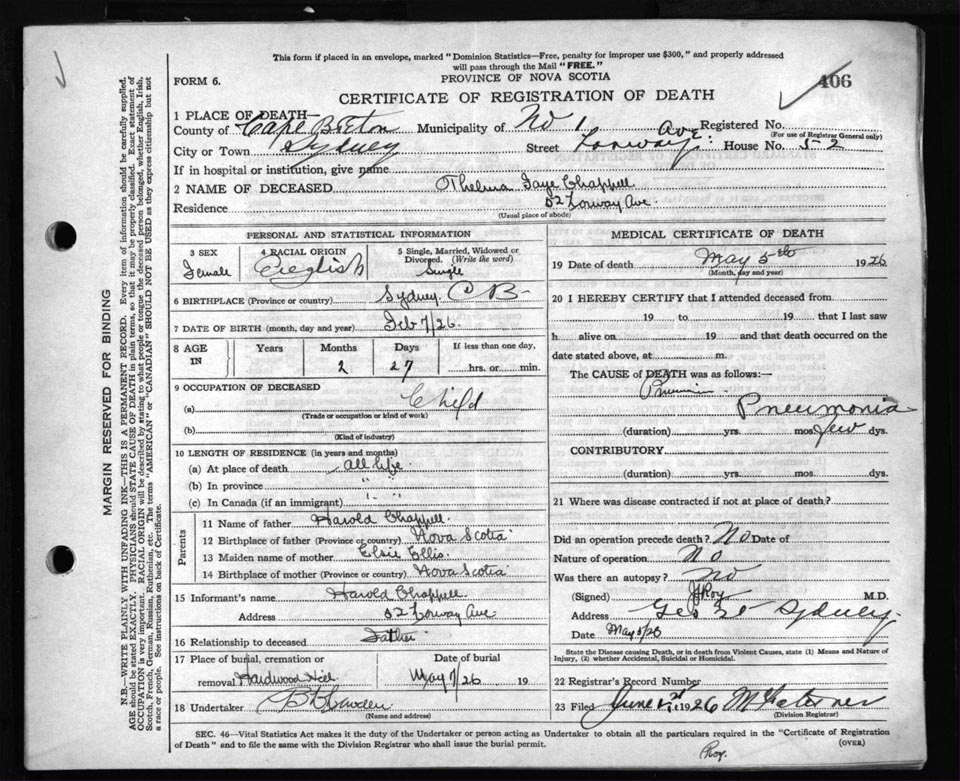 This form if placed in an envelope, marked "Dominion Statistics—Free, penalty for improper use $300," and properly addressed
will pass through the Mail "FREE."
FORM 6.
PROVINCE OF NOVA SCOTIA
406
CERTIFICATE OF REGISTRATION OF DEATH
1 PLACE OF DEATH—
County of Cape Breton Municipality of No 1 Registered No.
(For use of Registrar General only)
City or Town Sydney Street Lorway Ave House No. 52
If in hospital or institution, give name
2 NAME OF DECEASED Thelma Faye Chappell
Residence 52 Lorway Ave
(Usual place of abode)
PERSONAL AND STATISTICAL INFORMATION
3 SEX 4 RACIAL ORIGIN 5 Single, Married, Widowed or
Divorced. (Write the word)
Female English Single
6 BIRTHPLACE (Province or country) Sydney C B
7 DATE OF BIRTH (month, day and year) Feb 7/26
8 AGE IN Years Months Days If less than one day,
2 27 hrs. or min.
9 OCCUPATION OF DECEASED
(a) Child
(Trade or occupation or kind of work)
(b)
(Kind of industry)
10 LENGTH OF RESIDENCE (in years and months)
(a) At place of death all life
(b) In province " "
(c) In Canada (if an immigrant) " "
Parents
11 Name of father Harold Chappell
12 Birthplace of father (Province or country) Nova Scotia
13 Maiden name of mother Elsie Ellis
14 Birthplace of mother (Province or country) Nova Scotia
15 Informant's name Harold Chappell
Address 52 Lorway Ave
16 Relationship to deceased Father
17 Place of burial, cremation or Date of burial
removal Hardwood Hill May 7/26 19
18 Undertaker
(Name and address)
MEDICAL CERTIFICATE OF DEATH
19 Date of death May 5th 1926
(Month, day and year)
20 I HEREBY CERTIFY that I attended deceased from
19 to 19 that I last saw
h alive on 19 and that death occurred on the
date stated above, at m.
The CAUSE of DEATH was as follows:—
Pneumonia
(duration) yrs. mos. few dys.
CONTRIBUTORY
(duration) yrs. mos. dys.
21 Where was disease contracted if not at place of death?
Did an operation precede death? No Date of
Nature of operation No
Was there an autopsy? No
(Signed) Roy M.D.
Address Sydney
Date May 5/26
State the Disease causing Death, or in death from Violent Causes, state (1) Means and Nature of
Injury, (2) whether Accidental, Suicidal or Homicidal.
22 Registrar's Record Number
23 Filed June 1926
(Division Registrar)
SEC. 46—Vital Statistics Act makes it the duty of the Undertaker or person acting as Undertaker to obtain all the particulars required in the "Certificate of Registration
of Death" and to file the same with the Division Registrar who shall issue the burial permit.
(OVER)
Roy.
MARGIN RESERVED FOR BINDING
N.B.—WRITE PLAINLY WITH UNFADING INK—THIS IS A PERMANENT RECORD. Every item of information should be carefully supplied.
AGE should be stated EXACTLY. PHYSICIANS should STATE CAUSE OF DEATH in plain terms, so that it may be properly classified. Exact statement of
OCCUPATION is very important. RACIAL ORIGIN will be described by stating to what people or tongue the deceased person belonged, whether English, Irish,
Scotch, French, German, Russian, Ruthenian, etc. The terms "AMERICAN" or "CANADIAN" SHOULD NOT BE USED as they express citizenship but not
a race or people. See instructions on back of Certificate.